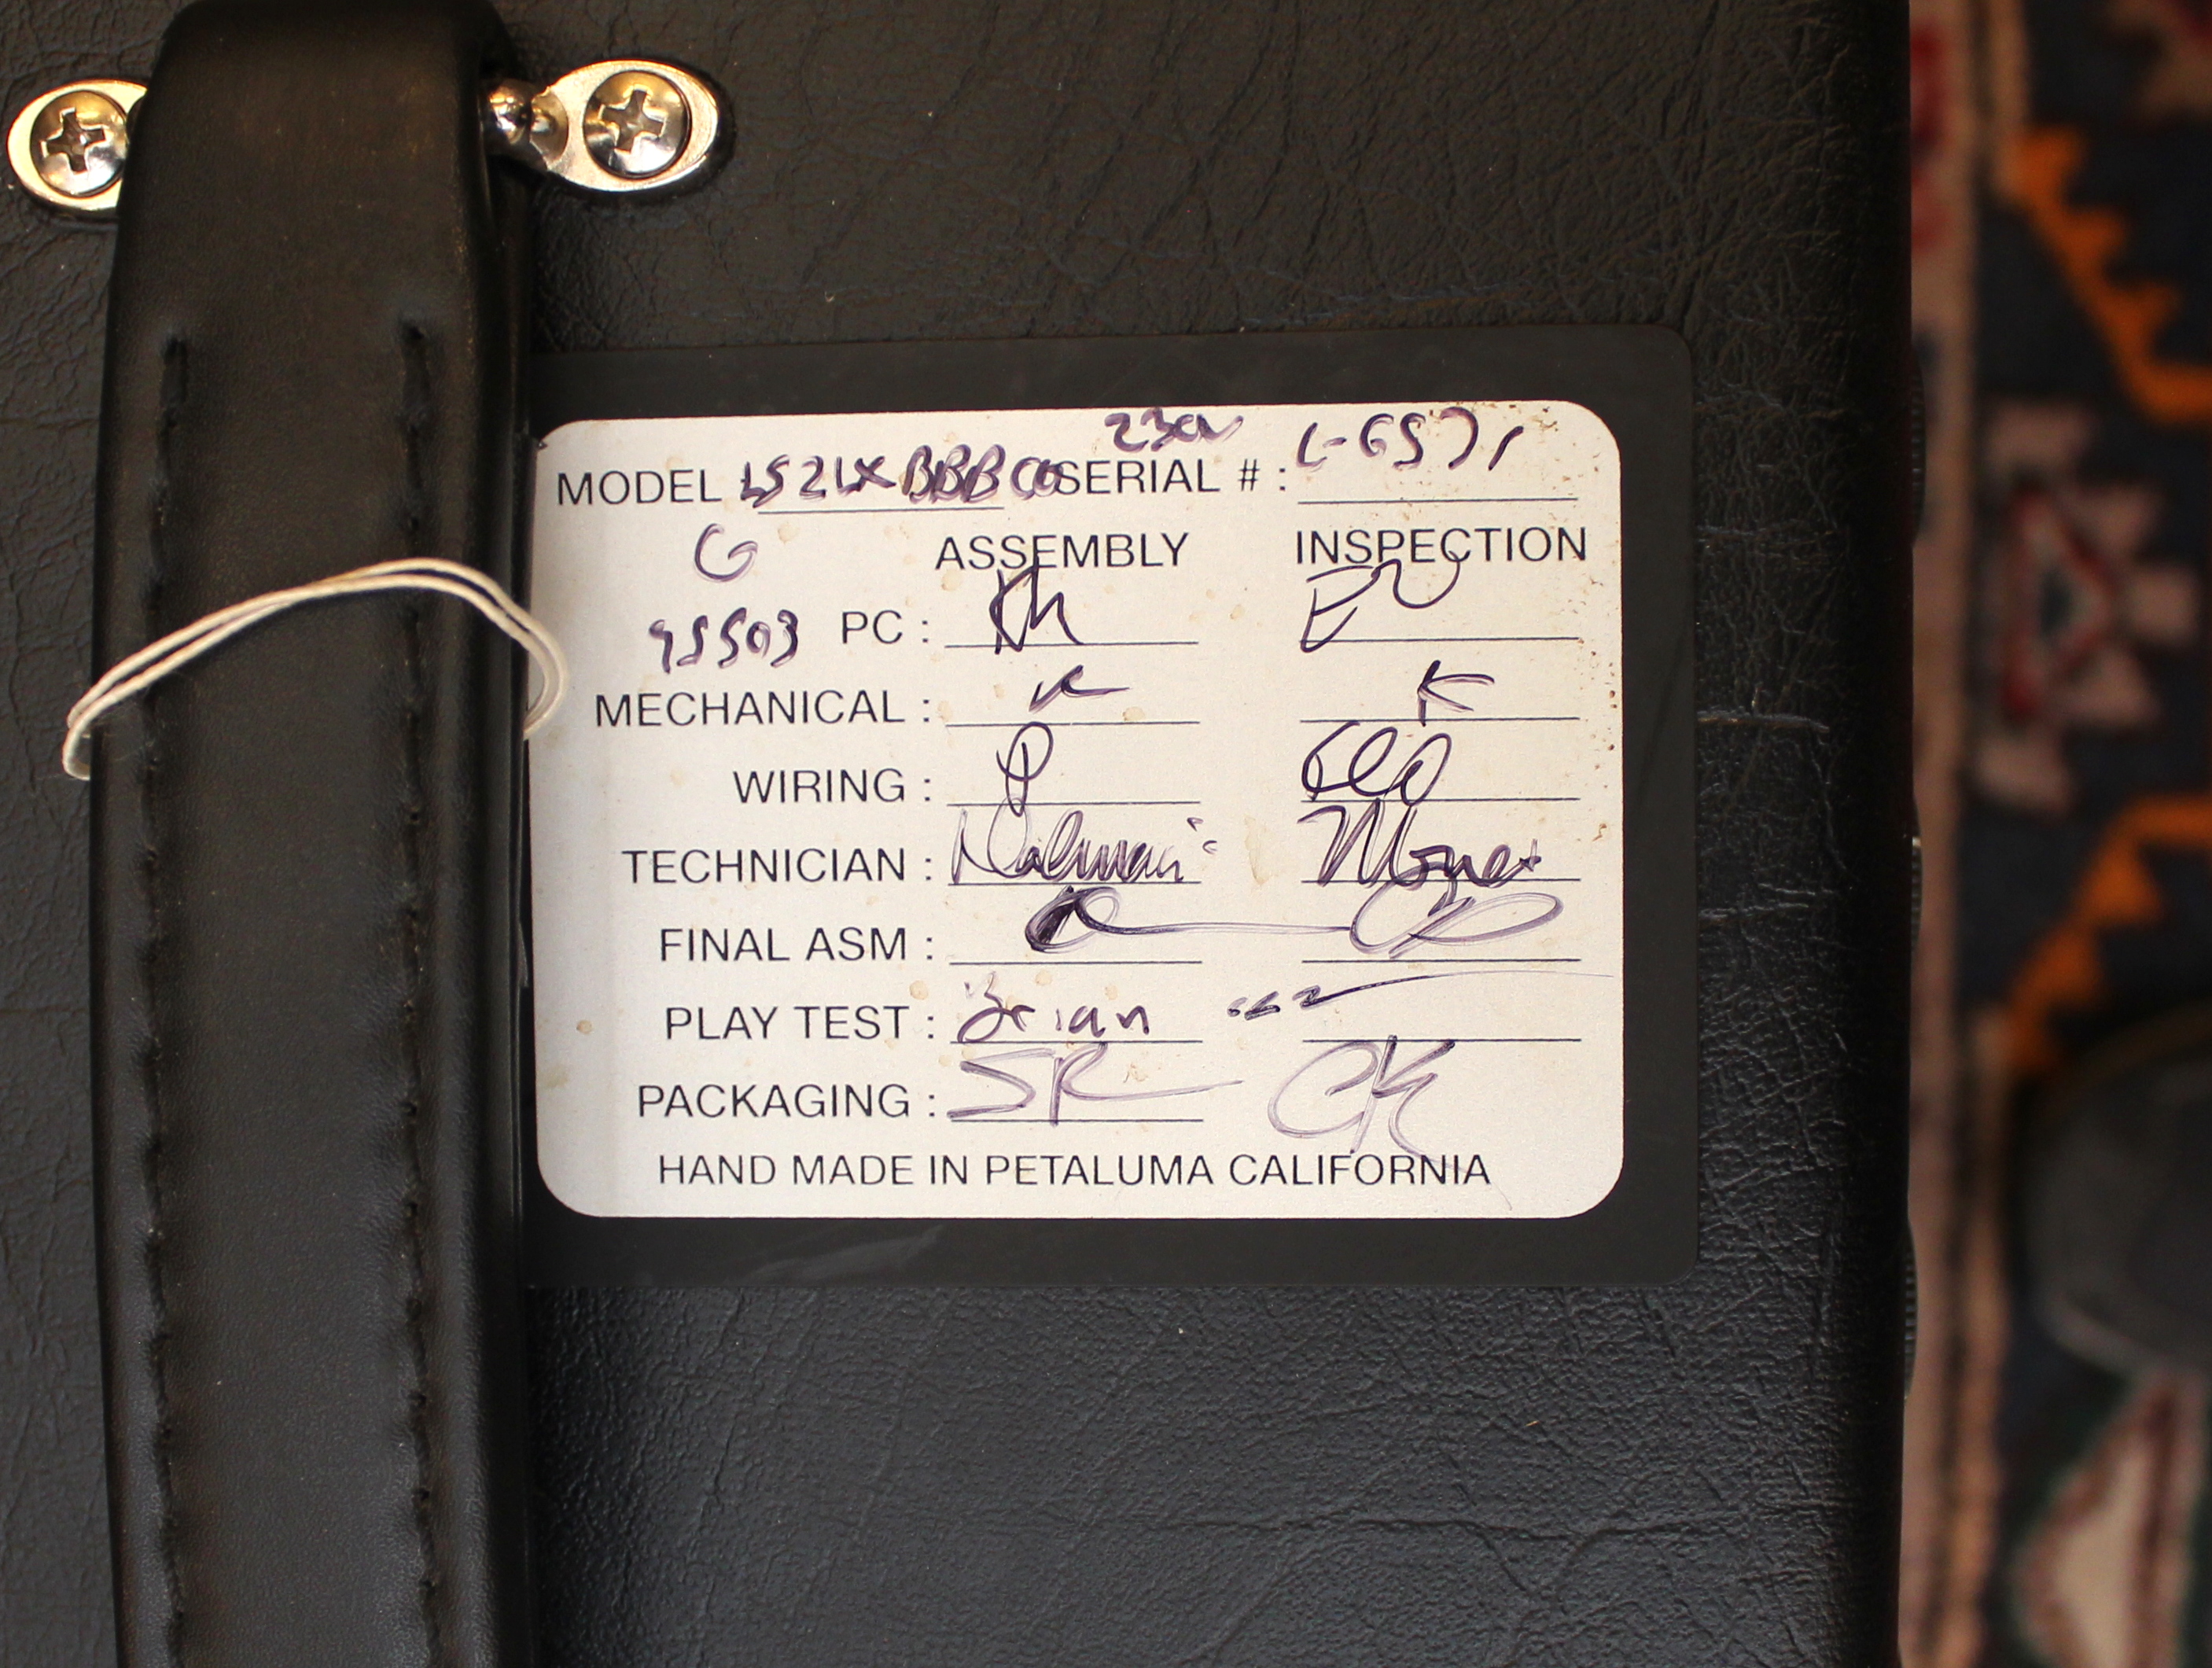 230V L-6571
MODEL LS2LX BBB CO SERIAL # :
G ASSEMBLY INSPECTION
95503 PC :
MECHANICAL : K K
WIRING :
TECHNICIAN :
FINAL ASM :
PLAY TEST : Brian
PACKAGING : SR CK
HAND MADE IN PETALUMA CALIFORNIA